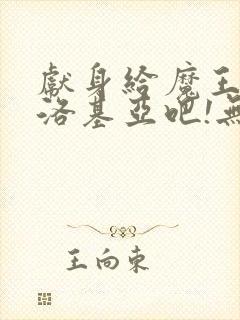 獻身給魔王
洛基亞吧!無
王向東